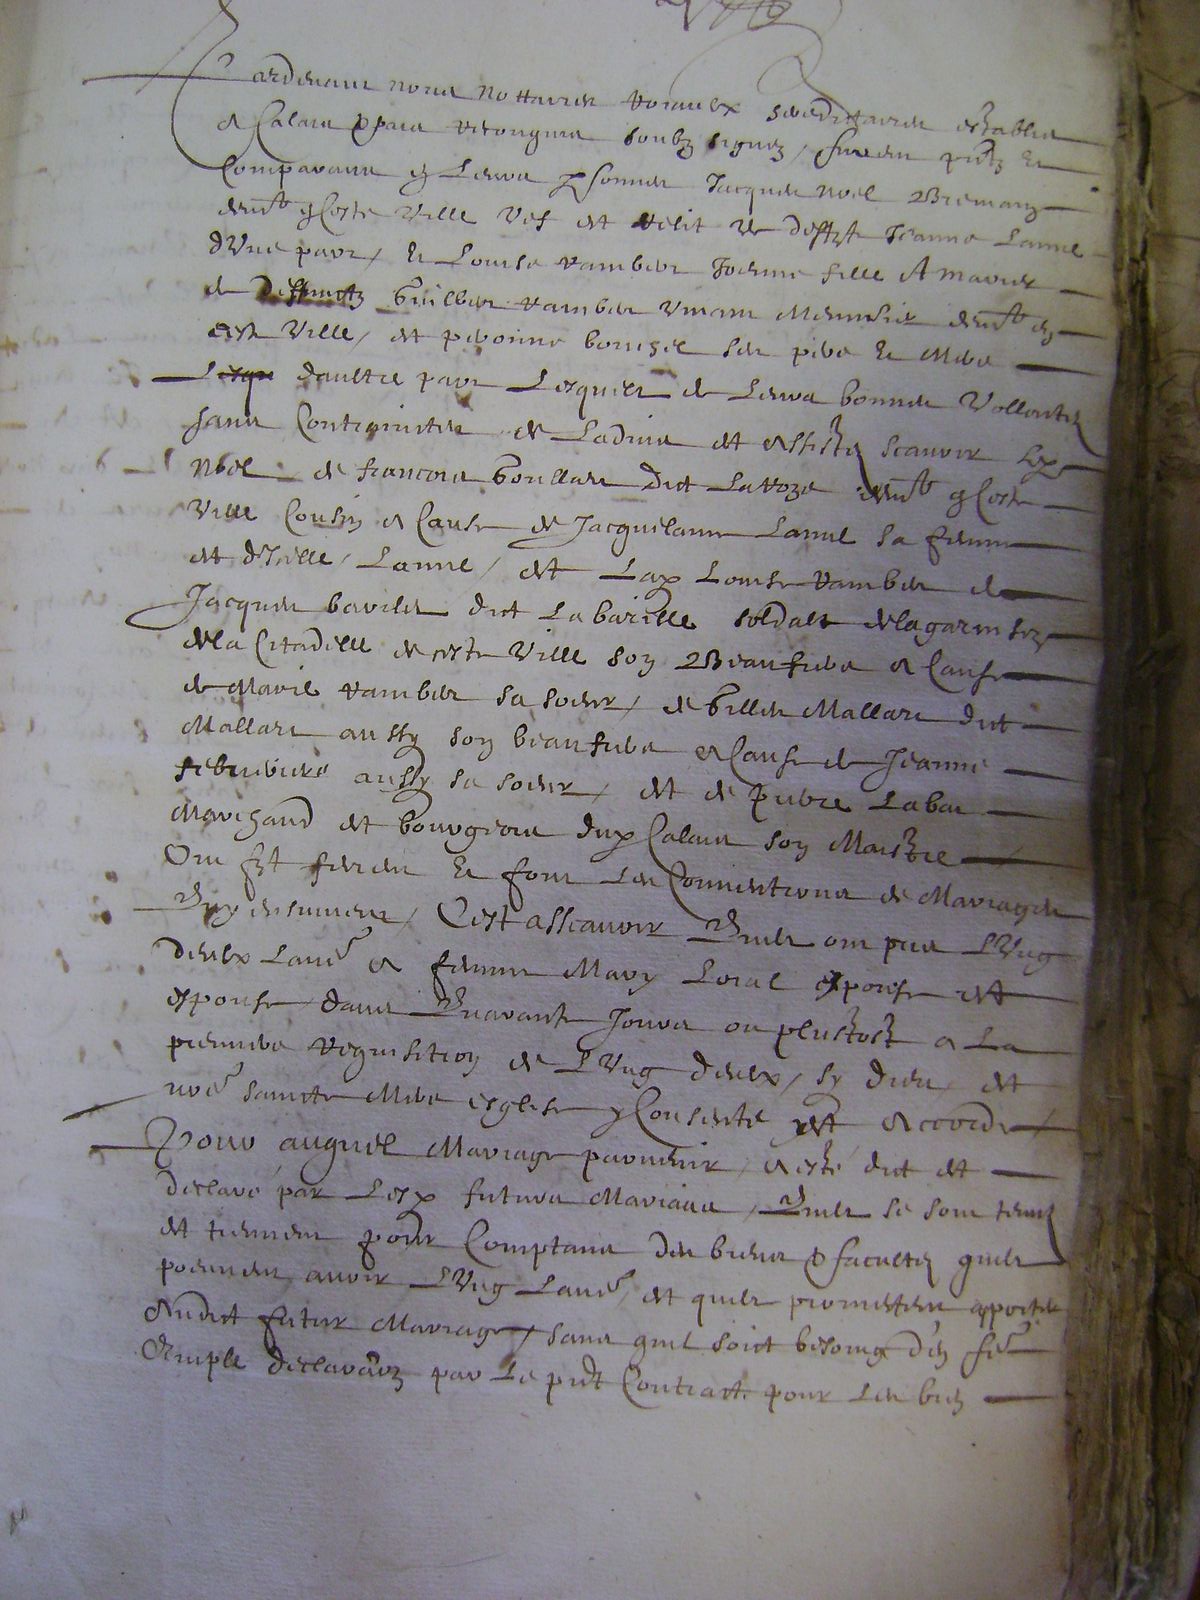 Pardevant nous nottaires roiaulx hereditaires establis
A Calais & pais reconquis soubz signez, furent pntz et
Comparans en leurs psonnes Jacques Noel
demt en ceste Ville vef et de deffte Jeanne Lamel
d'Une part, et Louise Vamber Joenne fille A marier
de deffunctz Guilbert Vamber Vivant demt en
ceste Ville, et peronne son pere et Mere
Lesqu d'aultre part Lesquels de Leurs bonnes Vollontez
sans Contrainctes, de Ladvis et Assistez scavoir Led
Noel, de francois Goullart dict Larroze demt en Ceste
Ville Cousin A Cause de Jacquelaine Lamel sa femme
et d'Icelle, Lamel, et Lad Louise Vamber de
Jacques dict Labarille soldalt dela garnison
dela Citadelle de ceste Ville son Beaufrere A Cause
de Marie Vamber sa soeur, de Gilles Mallart dict
Mallart aussy son beaufrere A Cause de Jeanne
aussy sa soeur, et de pierre Labar
Marchand et bourgeois dud Calais son Maistre
Ont fait feirent et font les Conventions de Mariage
quy ensuivent, C'est asscavoir quils ont pris L'Ung
d'eulx Laue A femme Mary Loial espouse et
espouse dans quarante Jours ou plustost A La
premiere requisition de L'Ung d'eulx, sy dieu, et
nre saincte Mere esglise y Consente et Accorde,
Pour auquel Mariage parvenir, A esté dict et
declaré par Lesd futurs Marians, quils se sont tenus
et tiennent pour Comptans des biens & facultez quils
peuvent avoir L'Ung Laue, et quils promettent apporter
Audict futur Mariage, sans quil soict besoing d'en fe
Ample declaraon par Le pnt Contract pour Les biens